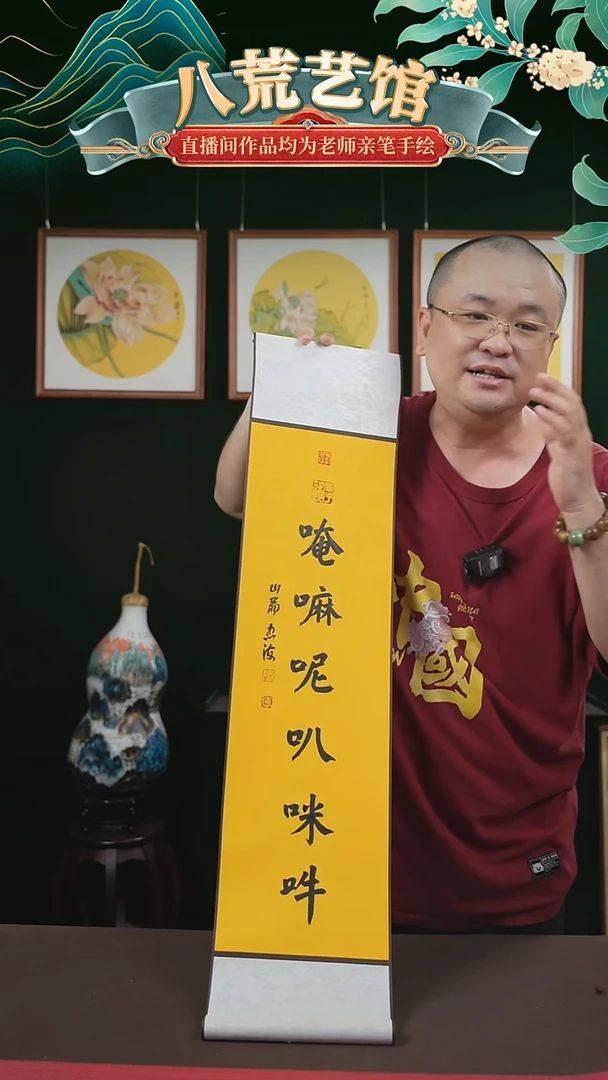 八荒艺馆
直播间作品均为老师亲笔手绘
唵嘛呢叭咪吽
中國